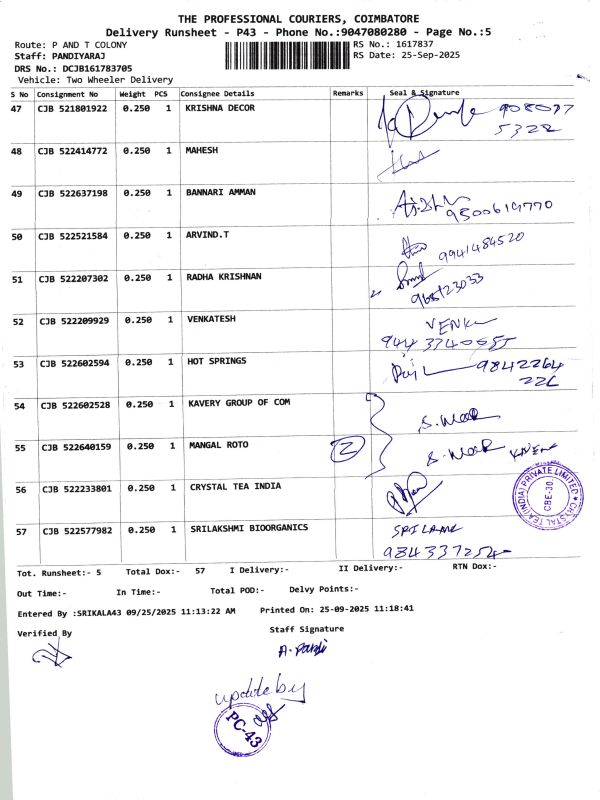 THE PROFESSIONAL COURIERS, COIMBATORE
Delivery Runsheet - P43 - Phone No.:9047080280 - Page No.:5
Route: P AND T COLONY
RS No.: 1617837
Staff: PANDIYARAJ
RS Date: 25-Sep-2025
DRS No.: DCJB161783705
Vehicle: Two Wheeler Delivery
S No Consignment No Weight PCS Consignee Details Remarks Seal & Signature
47 CJB 521801922 0.250 1 KRISHNA DECOR
5322
48 CJB 522414772 0.250 1 MAHESH
49 CJB 522637198 0.250 1 BANNARI AMMAN
50 CJB 522521584 0.250 1 ARVIND.T
9941484520
51 CJB 522207302 0.250 1 RADHA KRISHNAN
968123033
52 CJB 522209929 0.250 1 VENKATESH
53 CJB 522602594 0.250 1 HOT SPRINGS
9842264
54 CJB 522602528 0.250 1 KAVERY GROUP OF COM
55 CJB 522640159 0.250 1 MANGAL ROTO 2
56 CJB 522233801 0.250 1 CRYSTAL TEA INDIA
CRYSTAL TEA (INDIA) PRIVATE LIMITED
CBE-30.
57 CJB 522577982 0.250 1 SRILAKSHMI BIOORGANICS
Tot. Runsheet:- 5 Total Dox:- 57 I Delivery:- II Delivery:- RTN Dox:-
Out Time:- In Time:- Total POD:- Delvy Points:-
Entered By :SRIKALA43 09/25/2025 11:13:22 AM Printed On: 25-09-2025 11:18:41
Verified By
Staff Signature
update by
PC-43